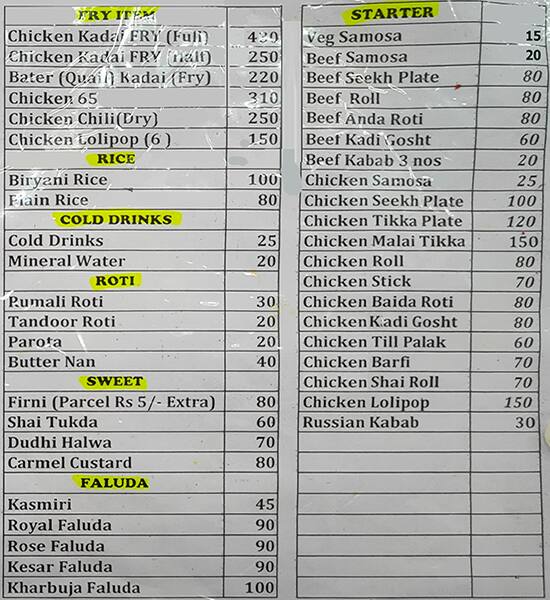 FRY ITEM
Chicken Kadai FRY (Full) 420
Chicken Kadai FRY (Half) 250
Bater (Quail) Kadai (Fry) 220
Chicken 65 310
Chicken Chili(Dry) 250
Chicken Lolipop (6 ) 150
RICE
Biryani Rice 100
Plain Rice 80
COLD DRINKS
Cold Drinks 25
Mineral Water 20
ROTI
Rumali Roti 30
Tandoor Roti 20
Parota 20
Butter Nan 40
SWEET
Firni (Parcel Rs 5/- Extra) 80
Shai Tukda 60
Dudhi Halwa 70
Carmel Custard 80
FALUDA
Kasmiri 45
Royal Faluda 90
Rose Faluda 90
Kesar Faluda 90
Kharbuja Faluda 100
STARTER
Veg Samosa 15
Beef Samosa 20
Beef Seekh Plate 80
Beef Roll 80
Beef Anda Roti 80
Beef Kadi Gosht 60
Beef Kabab 3 nos 20
Chicken Samosa 25
Chicken Seekh Plate 100
Chicken Tikka Plate 120
Chicken Malai Tikka 150
Chicken Roll 80
Chicken Stick 70
Chicken Baida Roti 80
Chicken Kadi Gosht 80
Chicken Till Palak 60
Chicken Barfi 70
Chicken Shai Roll 70
Chicken Lolipop 150
Russian Kabab 30